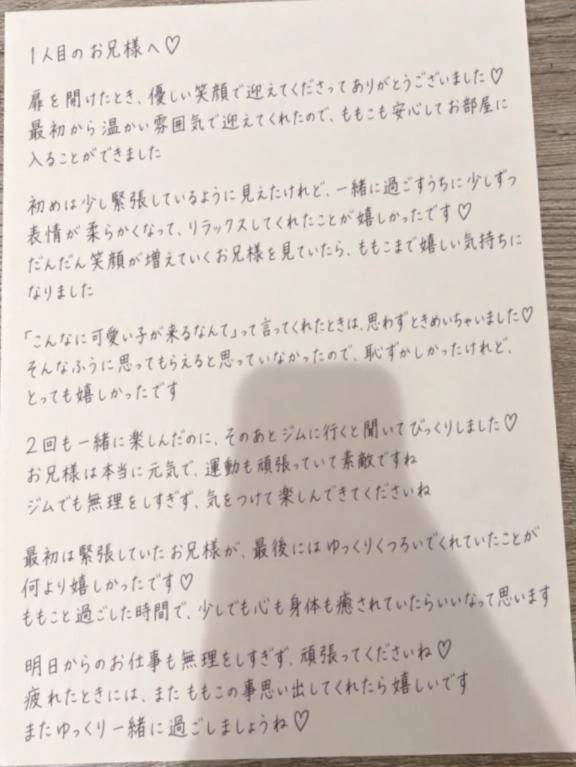 1人目のお兄様へ♡
扉を開けたとき、優しい笑顔で迎えてくださってありがとうございました♡
最初から温かい雰囲気で迎えてくれたので、ももこも安心してお部屋に
入ることができました
初めは少し緊張しているように見えたけれど、一緒に過ごすうちに少しずつ
表情が柔らかくなって、リラックスしてくれたことが嬉しかったです♡
だんだん笑顔が増えていくお兄様を見ていたら、ももこまで嬉しい気持ちに
なりました
「こんなに可愛い子が来るなんて」って言ってくれたときは、思わずときめいちゃいました♡
そんなふうに思ってもらえると思っていなかったので、恥ずかしかったけれど、
とっても嬉しかったです
2回も一緒に楽しんだのに、そのあとジムに行くと聞いてびっくりしました♡
お兄様は本当に元気で、運動も頑張っていて素敵ですね
ジムでも無理をしすぎず、気をつけて楽しんできてくださいね
最初は緊張していたお兄様が、最後にはゆっくりくつろいでくれていたことが
何より嬉しかったです♡
ももこと過ごした時間で、少しでも心も身体も癒されていたらいいなって思います
明日からのお仕事も無理をしすぎず、頑張ってくださいね♡
疲れたときには、またももこの事思い出してくれたら嬉しいです
またゆっくり一緒に過ごしましょうね♡